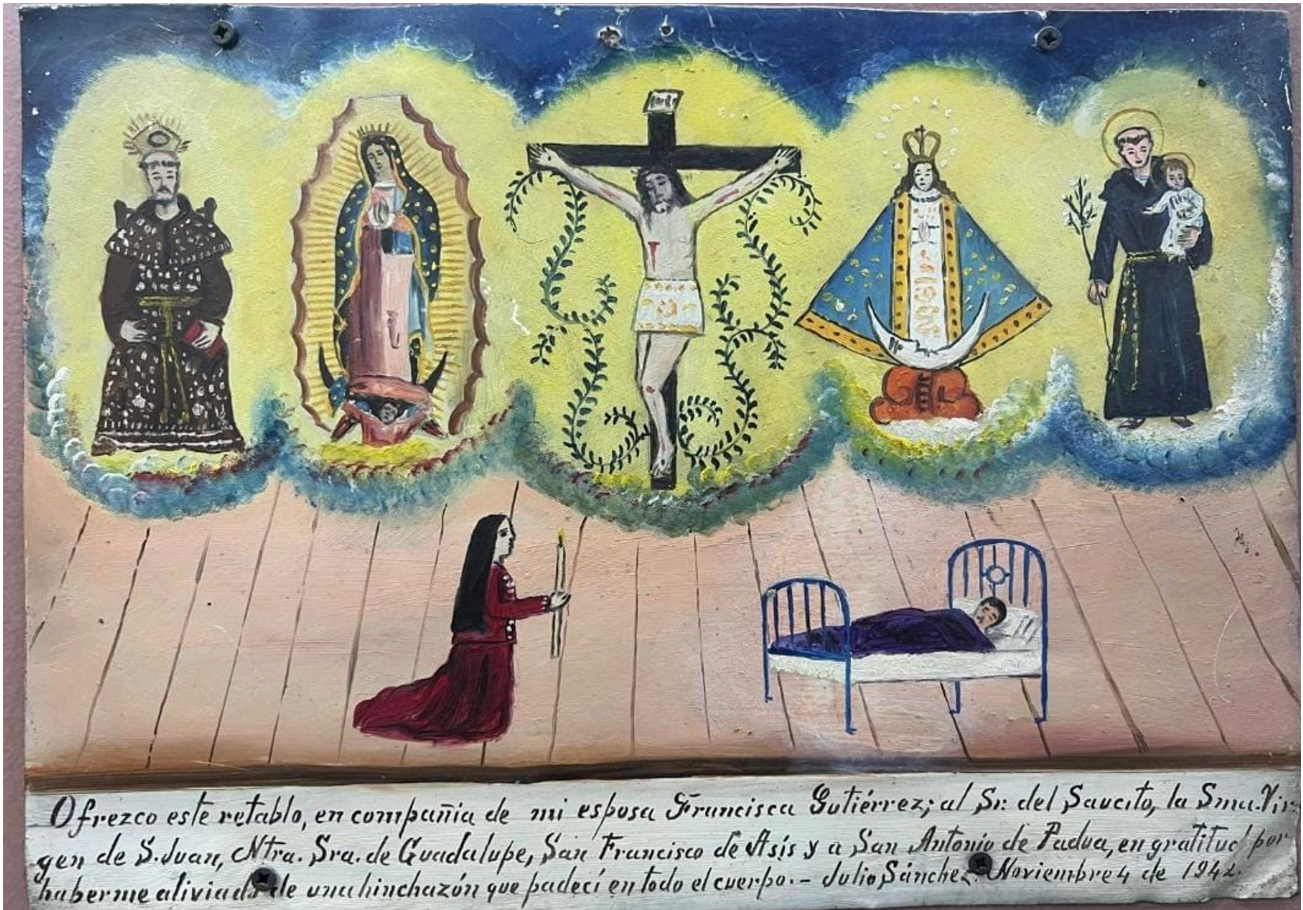 INRI
Ofrezco este retablo, en compañia de mi esposa Francisca Gutiérrez; al Sr. del Saucito, la Sma. Vir
gen de S. Juan, Ntra. Sra. de Guadalupe, San Francisco de Asis y a San Antonio de Padua, en gratitud por
haberme aliviado de una hinchazón que padecí en todo el cuerpo.- Julio Sánchez. Noviembre 4 de 1942.